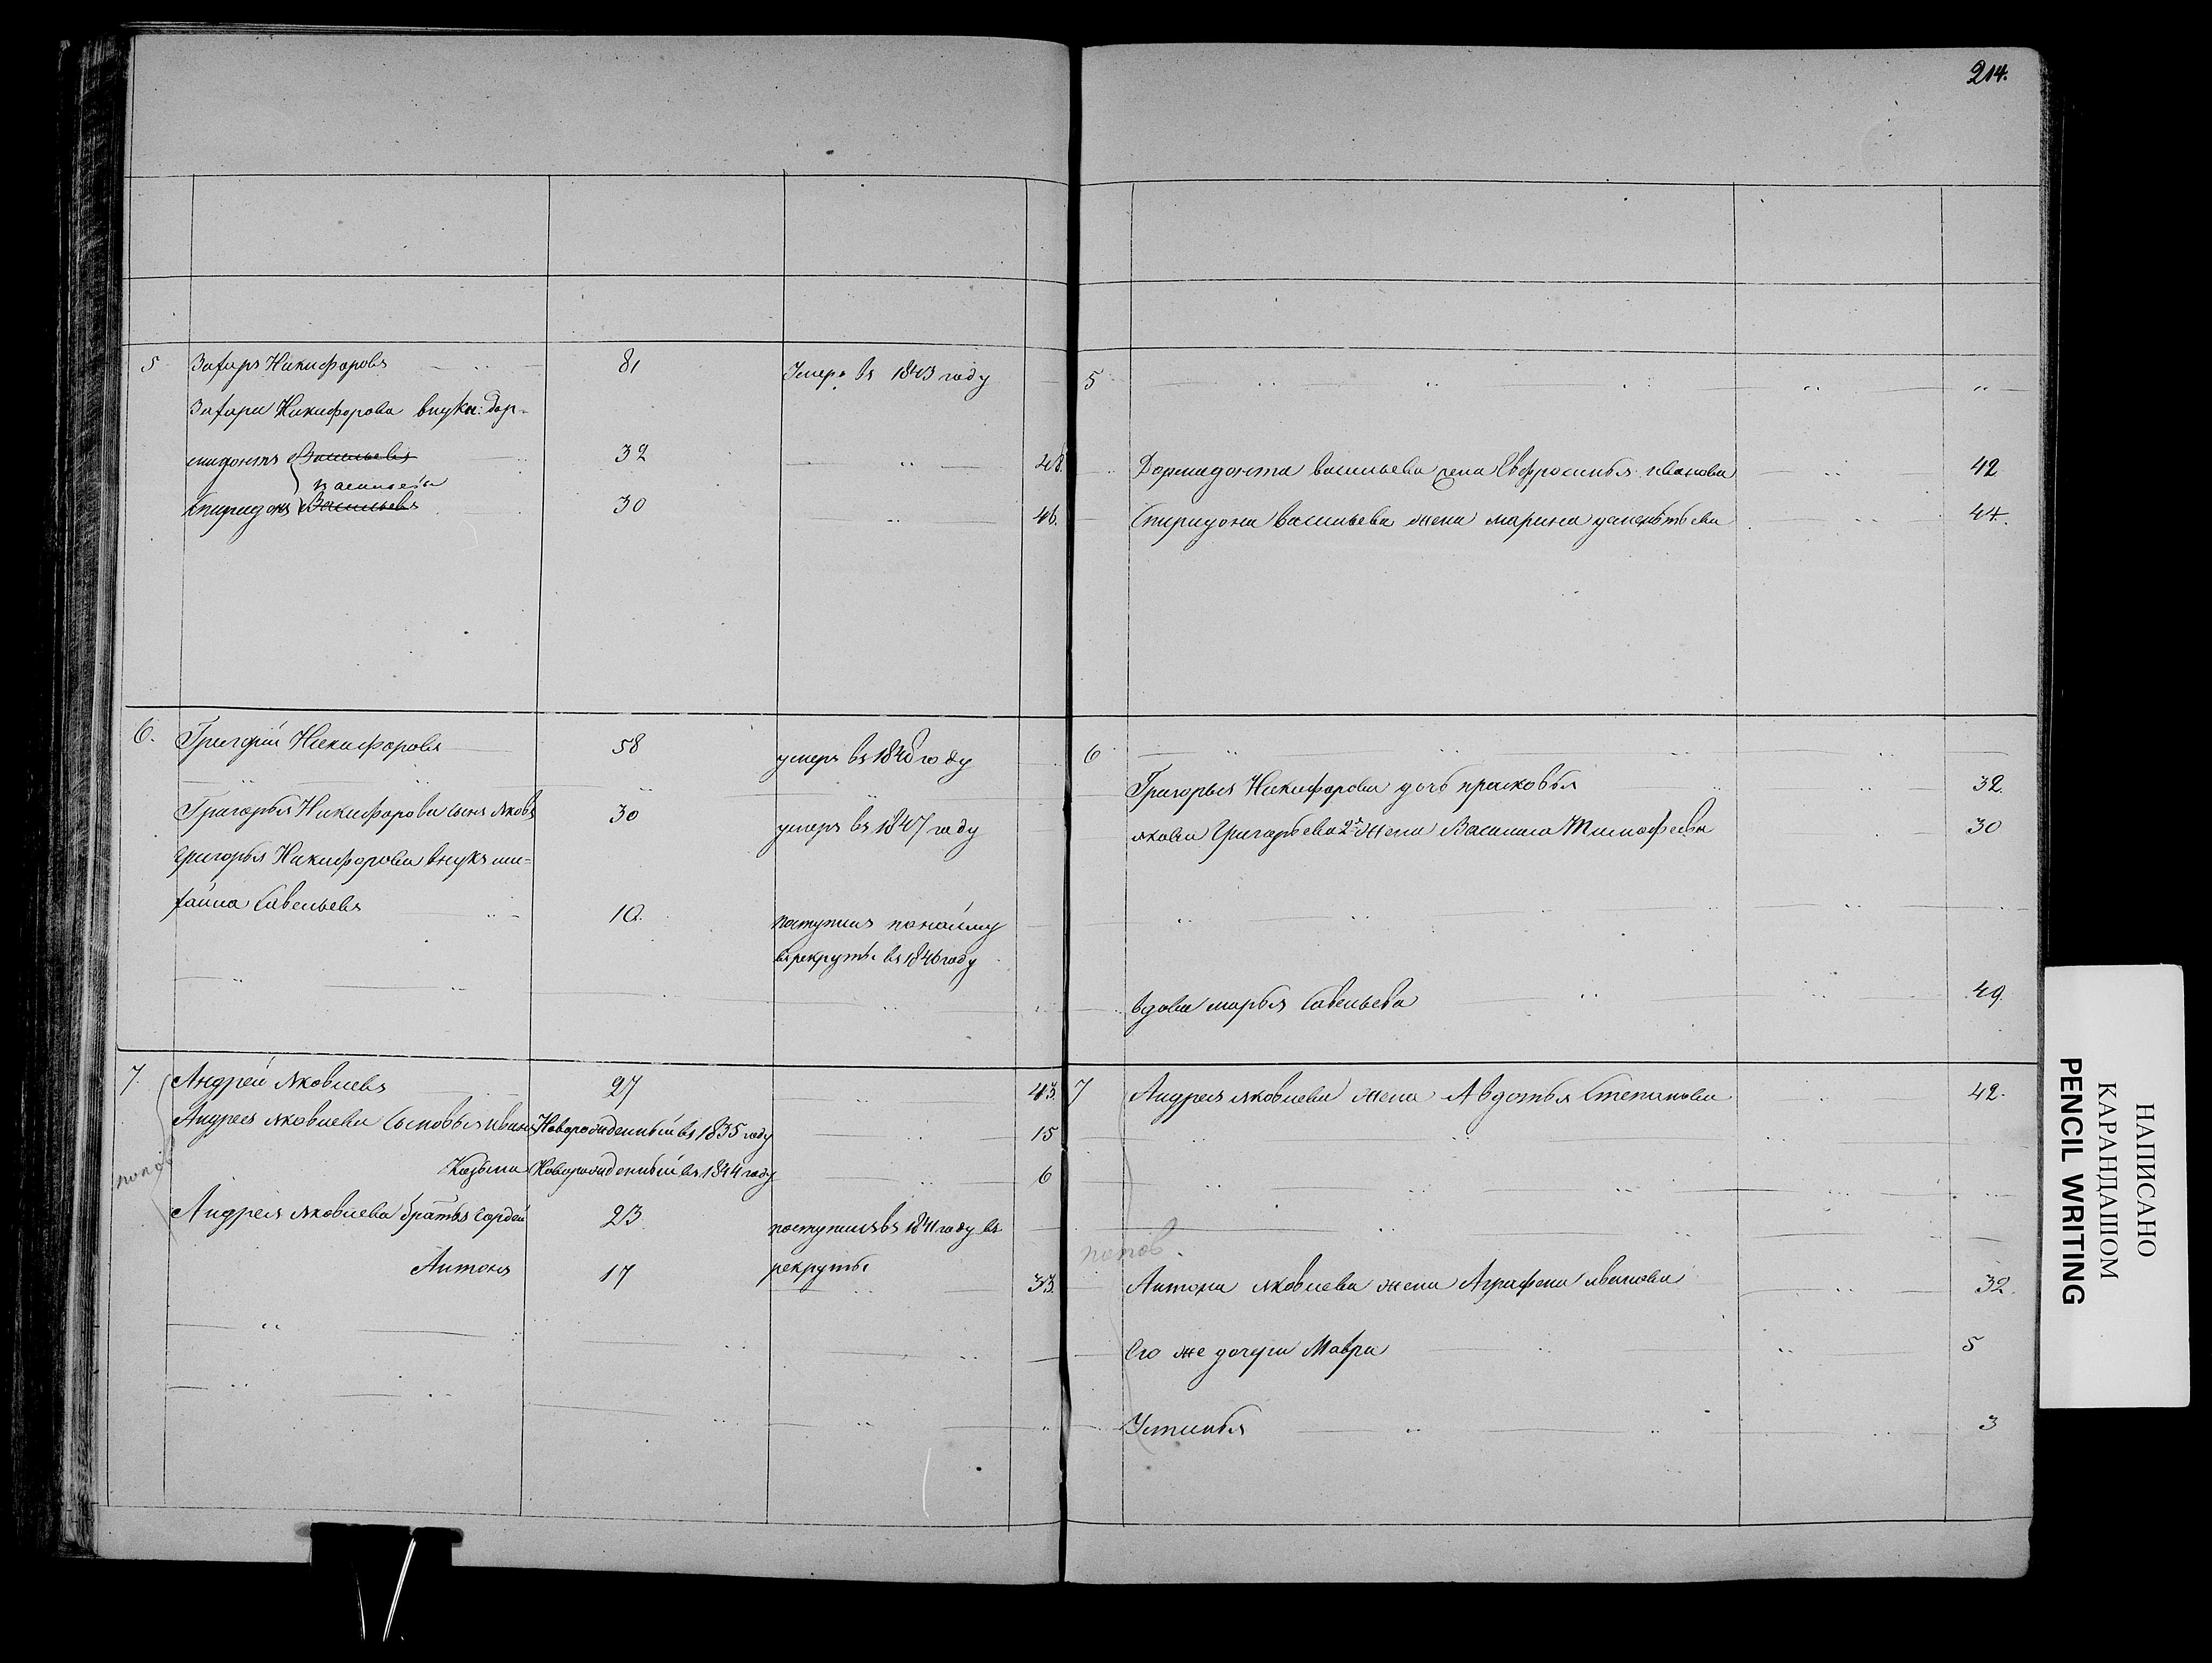 214.
5 Захаръ Никифоровъ 81 Умеръ въ 1843 году
Захара Никифорова внуки: Дор-
мидонтъ Васильевъ 32 48.
Васильевы
Спиридонъ Васильевъ 30 46.
6. Григорій Никифоровъ 58 умеръ въ 1840 году
Григорья Никифорова сынъ Яковъ 30 умеръ въ 1847 году
Григорья Никифорова внукъ ми-
хайла Савельевъ 10. поступилъ по найму
въ рекруты въ 1846 году
7. Андрей Яковлевъ 27 43.
Андрея Яковлева сыновья Иванъ Новорожденный въ 1835 году 15
Козьма Новорожденный въ 1844 году 6
попов
Андрея Яковлева братья Гордей 23 поступилъ въ 1841 году въ
рекруты
Антонъ 17 33.
5
Дормидонта Васильева жена Евфросинья Иванова 42
Спиридона Васильева жена Марина 44.
6
Григорья Никифорова дочь Прасковья 32.
Якова Григорьева 2я жена Василиса Тимофеева 30
вдова Марья Савельева 49.
7 Андрея Яковлева жена Авдотья Степанова 42.
попов
Антона Яковлева жена Аграфена Иванова 32.
Его же дочери Мавра 5
Устинья 3
НАПИСАНО
КАРАНДАШОМ
PENCIL WRITING